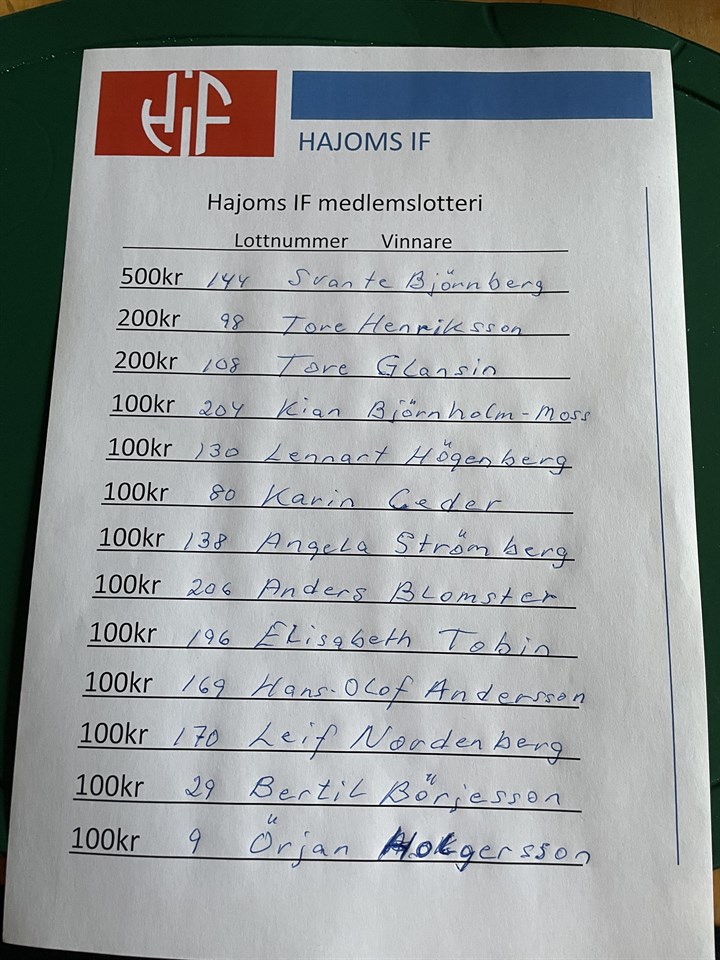 HIF
HAJOMS IF
Hajoms IF medlemslotteri
Lottnummer Vinnare
500kr 144 Svante Björnberg
200kr 98 Tore Henriksson
200kr 108 Tore Glansin
100kr 204 Kian Björnholm-Moss
100kr 130 Lennart Högenberg
100kr 80 Karin Ceder
100kr 138 Angela Strömberg
100kr 206 Anders Blomster
100kr 196 Elisabeth Tobin
100kr 169 Hans-Olof Andersson
100kr 170 Leif Nordenberg
100kr 29 Bertil Börjesson
100kr 9 Örjan Holgersson